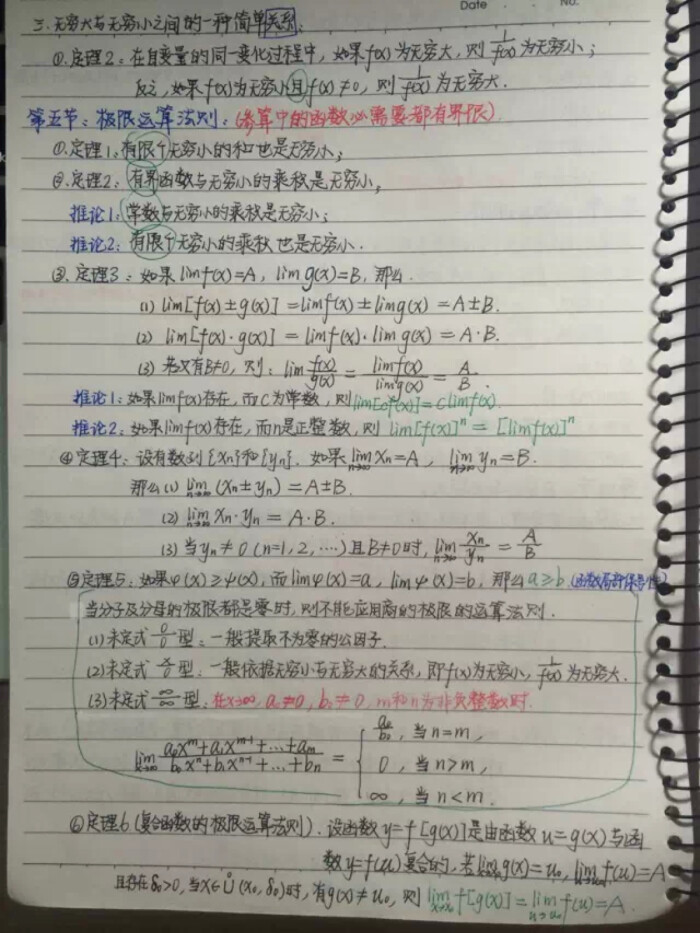 Date No.
三.无穷大与无穷小之间的一种简单关系:
①.定理2:在自变量的同一变化过程中,如果f(x)为无穷大,则1/f(x)为无穷小;
反之,如果f(x)为无穷小且f(x)≠0,则1/f(x)为无穷大.
第五节:极限运算法则:(参算中的函数必需要都有界限)
①.定理1:有限个无穷小的和也是无穷小;
②.定理2:有界函数与无穷小的乘积是无穷小;
推论1:常数与无穷小的乘积是无穷小;
推论2:有限个无穷小的乘积也是无穷小.
③.定理3:如果limf(x)=A, limg(x)=B,那么.
(1) lim[f(x)±g(x)]=limf(x)±limg(x)=A±B.
(2) lim[f(x)·g(x)]=limf(x)·limg(x)=A·B.
(3) 若又有B≠0,则:lim f(x)/g(x) = limf(x)/limg(x) = A/B.
推论1:如果limf(x)存在,而C为常数,则lim[cf(x)]=Climf(x).
推论2:如果limf(x)存在,而n是正整数,则 lim[f(x)]^n=[limf(x)]^n
④定理4:设有数列{xn}和{yn}.如果lim n→∞ xn=A, lim n→∞ yn=B.
那么(1) lim n→∞ (xn±yn)=A±B.
(2) lim n→∞ xn·yn=A·B.
(3) 当yn≠0(n=1,2,....)且B≠0时,lim n→∞ xn/yn=A/B
⑤定理5:如果φ(x)≥ψ(x),而limφ(x)=a, limψ(x)=b,那么a≥b.(函数局部保号性)
当分子及分母的极限都是零时,则不能应用商的极限的运算法则.
(1)未定式0/0型:一般提取不为零的公因子.
(2)未定式 /0型:一般依据无穷小与无穷大的关系,即f(x)为无穷小,1/f(x)为无穷大.
(3)未定式∞/∞型:在x→∞,a₀≠0,b₀≠0,m和n为非负整数时.
lim x→∞ (a₀x^m+a₁x^(m-1)+...+am)/(b₀x^n+b₁x^(n-1)+...+bn) = { a₀/b₀,当n=m,
0,当n>m,
∞,当n<m.
⑥定理6(复合函数的极限运算法则).设函数y=f[g(x)]是由函数u=g(x)与函
数y=f(u)复合的,若lim x→x₀ g(x)=u₀,lim u→u₀ f(u)=A
且存在δ₀>0,当x∈Ů(x₀,δ₀)时,有g(x)≠u₀,则lim x→x₀ f[g(x)]=lim u→u₀ f(u)=A.